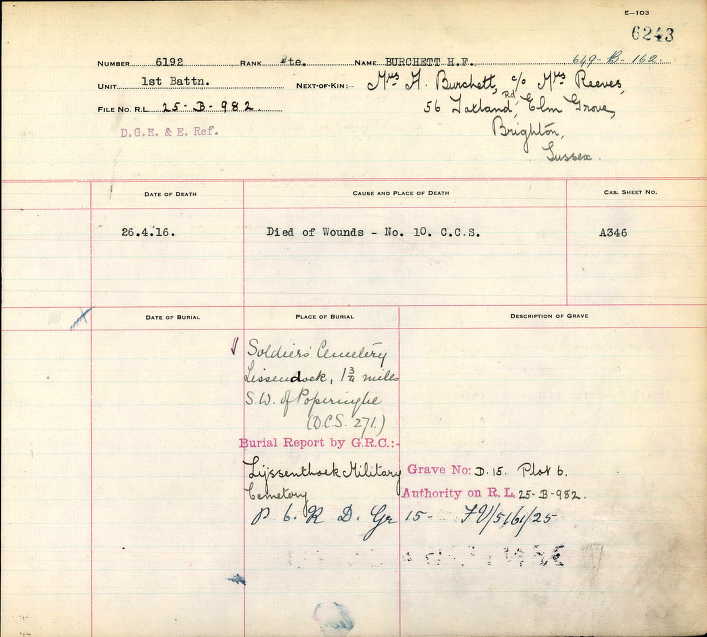 E-103
6243
NUMBER 6192 RANK Pte. NAME BURCHETT H.F. 649-B-162.
UNIT 1st Battn. NEXT-OF-KIN:- Mrs H. Burchett, c/o Mrs Reeves,
FILE NO. R.L. 25-B-982 56 Rd, Elm Grove,
D.G.R. & E. Ref. Brighton,
Sussex.
DATE OF DEATH CAUSE AND PLACE OF DEATH CAS. SHEET NO.
26.4.16. Died of Wounds - No. 10. C.C.S. A346
DATE OF BURIAL PLACE OF BURIAL DESCRIPTION OF GRAVE
Soldiers' Cemetery
Lissendock, 1 3/4 miles
S.W. of Poperinghe
(D.C.S. 271.)
Burial Report by G.R.C.:-
Lijssenthoek Military Grave No: D. 15. Plot 6.
Cemetery Authority on R.L. 25-B-982.
P 6. R D. Gr 15-